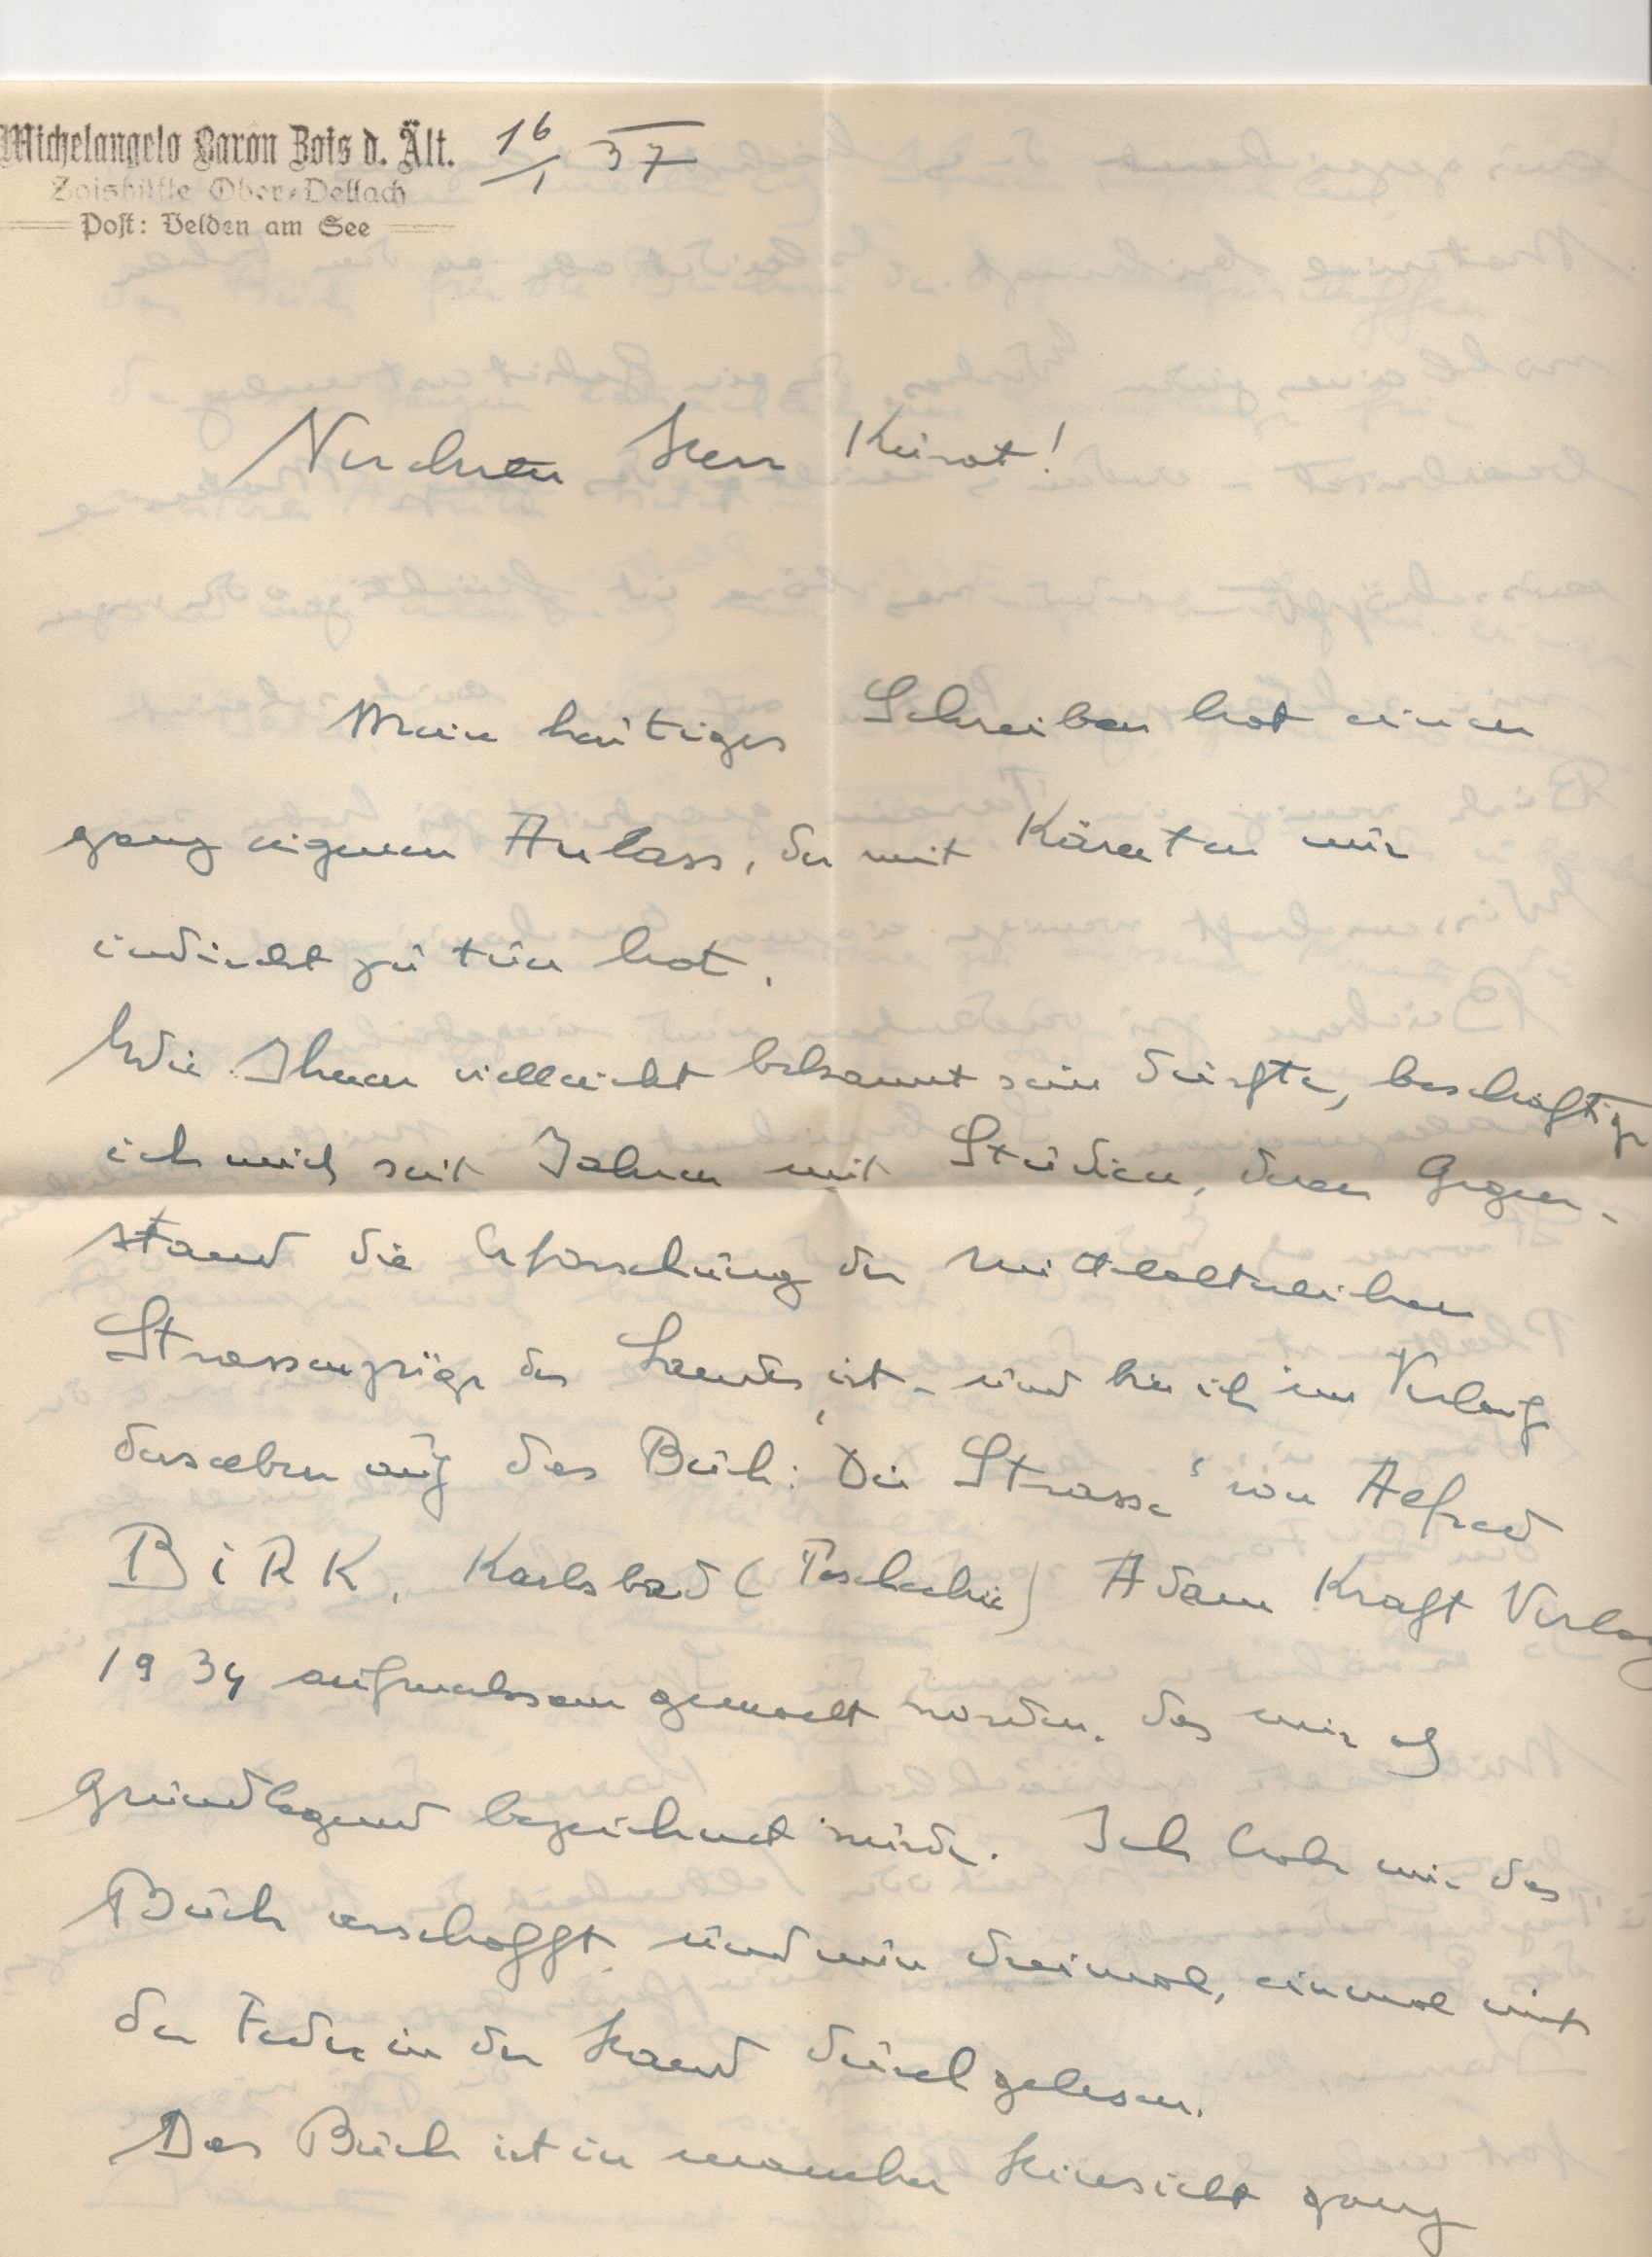 Michelangelo Baron Zois d. Ält.
Zoishütte Ober-Dellach
Post: Velden am See
16/1 37
Verehrter Herr Kunat!
Mein heutiges Schreiben hat einen
ganz eigenen Anlass, der mit Kärnten nur
indirekt zu tun hat.
Wie Ihnen vielleicht bekannt sein dürfte, beschäftige
ich mich seit Jahren mit Studien, deren Gegen-
stand die Erforschung der mittelalterlichen
Strassenzüge des Landes ist - und bin ich im Verlauf
derselben auf das Buch: "Die Strasse" von Alfred
BiRK, Karlsbad (Tschechei) Adam Kraft Verlag
1934 aufmerksam gemacht worden, das mir als
grundlegend bezeichnet wurde. Ich habe mir das
Buch verschafft und nun dreimal, einmal mit
der Feder in der Hand durchgelesen.
Das Buch ist in mancher Hinsicht ganz